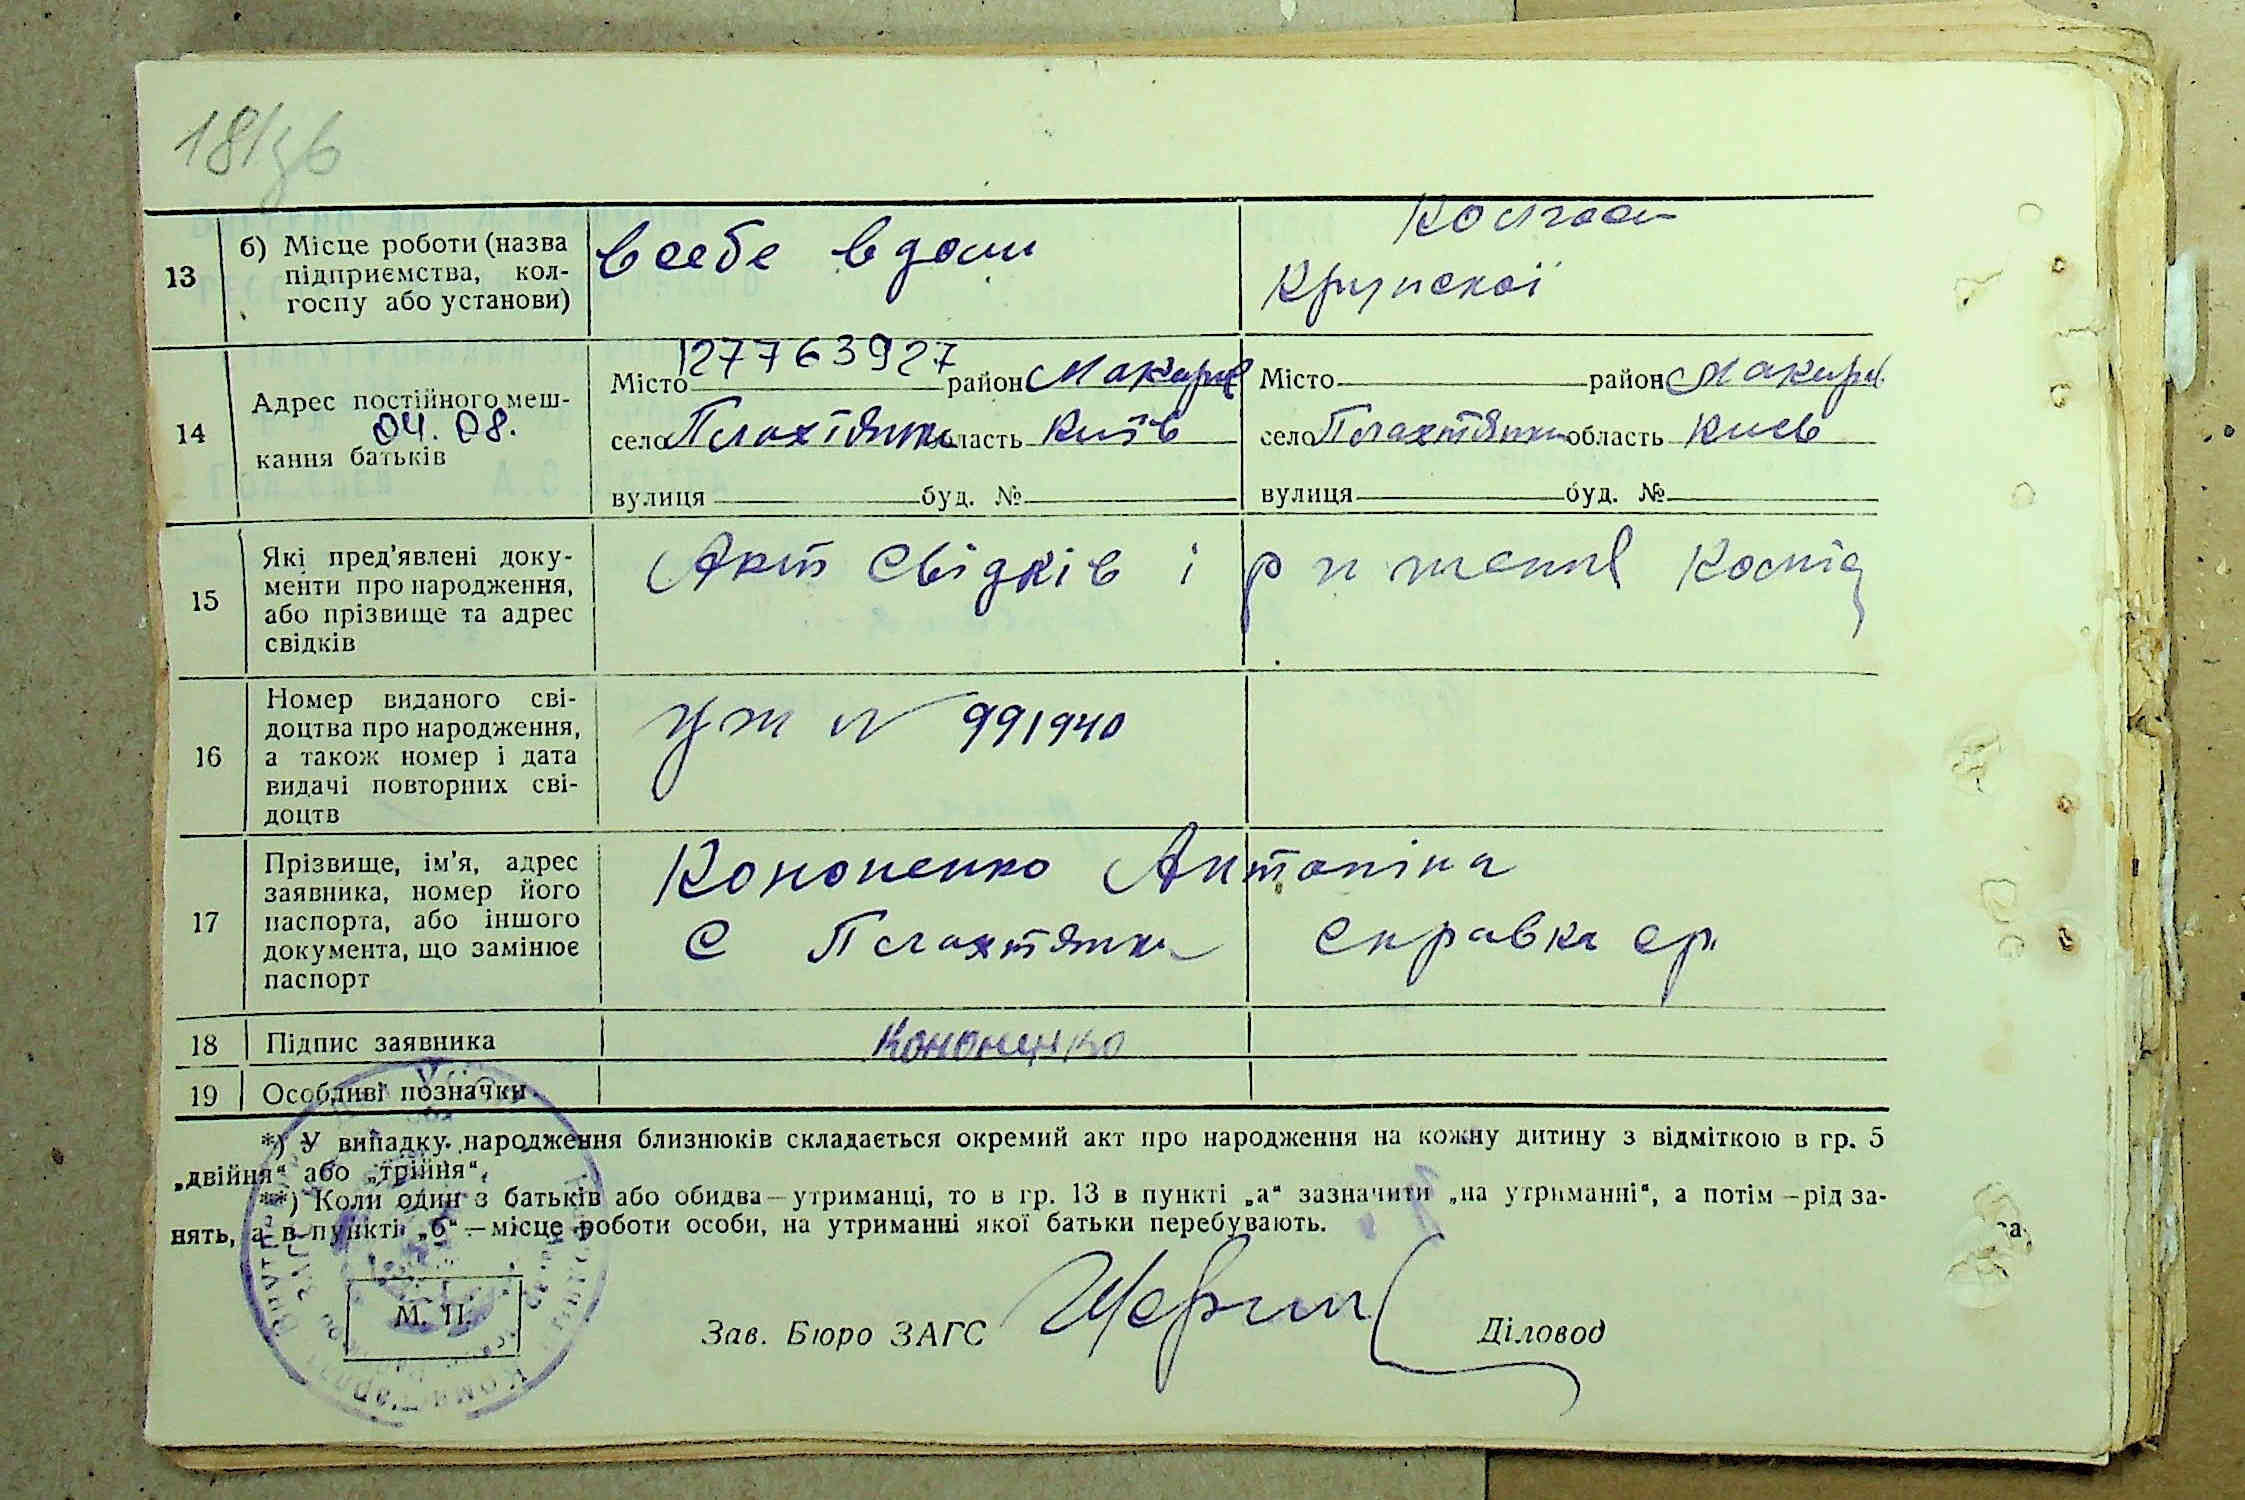 18/36
13
б) Місце роботи (назва
підприємства, кол-
госпу або установи)
в себе вдома
Колгосп
Крупської
14
Адрес постійного меш-
04.08.
кання батьків
127763927
Місто район Макарів
село Плахтянка область Київ
вулиця буд. №
Місто район Макарів
село Плахтянка область Киев
вулиця буд. №
15
Які пред'явлені доку-
менти про народження,
або прізвище та адрес
свідків
Акт свідків і
16
Номер виданого сві-
доцтва про народження,
а також номер і дата
видачі повторних сві-
доцтв
№ 991940
17
Прізвище, ім'я, адрес
заявника, номер його
паспорта, або іншого
документа, що замінює
паспорт
Кононенко Антоніна
С Плахтянка справка ср.
18
Підпис заявника
Кононенко
19
Особливі позначки.
*) У випадку народження близнюків складається окремий акт про народження на кожну дитину з відміткою в гр. 5
„двійня“ або „трійня“.
**) Коли один з батьків або обидва—утриманці, то в гр. 13 в пункті „а“ зазначити „на утриманні“, а потім—рід за-
нять, а в пункті „б“—місце роботи особи, на утриманні якої батьки перебувають.
М. П.
Зав. Бюро ЗАГС
Діловод